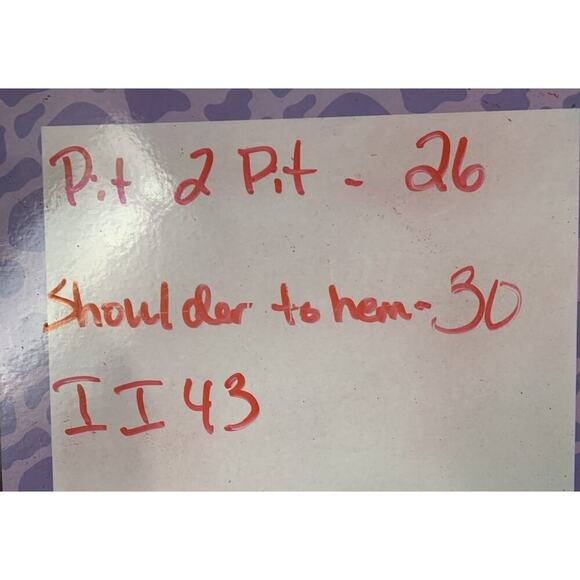 Pit 2 Pit - 26
Shoulder to hem- 30
II43